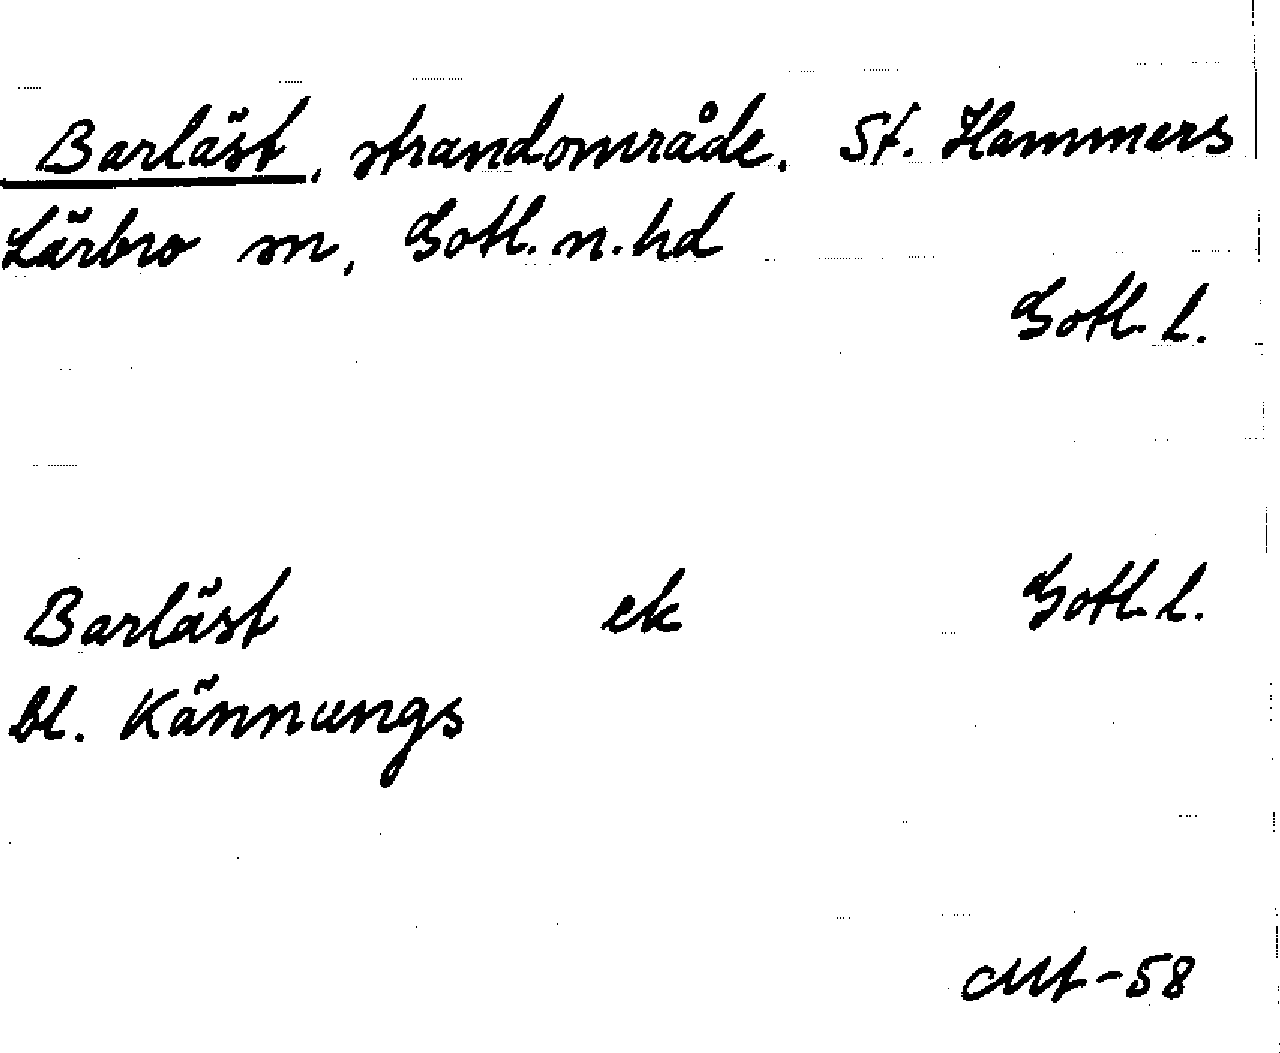 Barläst, strandområde. St. Hammers
Lärbro sn, Gotl. n. hd
Gotl. l.
Barläst ek Gotl. l.
bl. Kännungs
-58